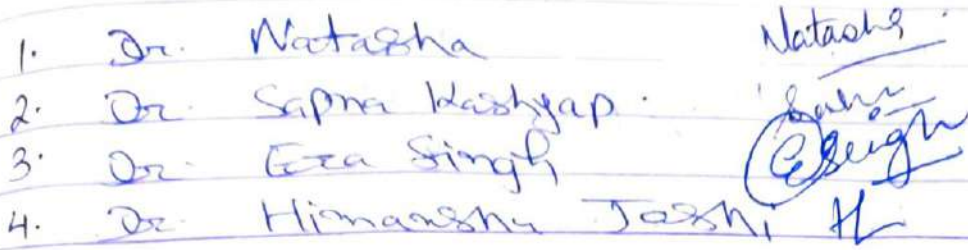 1. Dr. Natasha Natasha
2. Dr. Sapna Kashyap.
3. Dr. Era Singh ESingh
4. Dr. Himanshu Joshi H